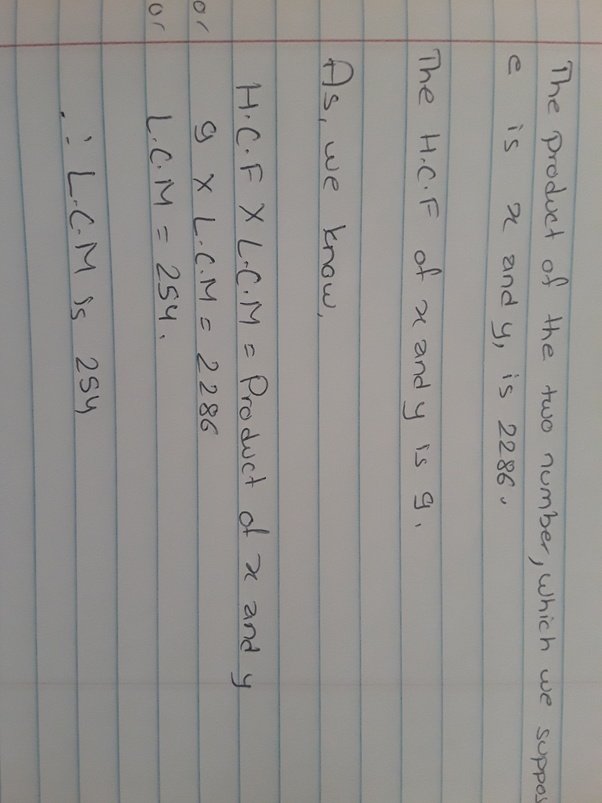 The product of the two number, which we suppos
e is x and y, is 2286.
The H.C.F of x and y is 9.
As, we know,
H.C.F X L.C.M = Product of x and y
or 9 X L.C.M = 2286
or L.C.M = 254.
∴ L.C.M is 254